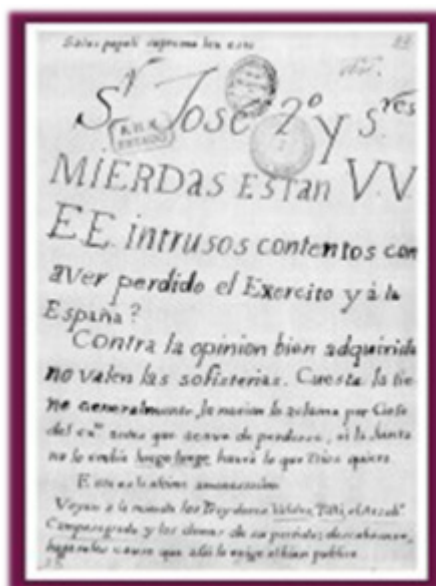 Salus populi suprema lex este
Sʳ José 2º y Sʳᵉˢ
A.H.N.
ESTADO
MIERDAS ESTAN V.V.
EE. intrusos contentos con
aver perdido el Exercito y á la
España?
Contra la opinion bien adquirida
no valen las sofisterias. Cuesta la tie
ne generalmente, la nacion lo aclama por Gefe
del antes que acave de perderse, si la Junta
no lo embia luego luego havrá lo que Dios quiera
Esta es la ultima
Vayan a la los Traydores
y los demas de su partido; descabecense,
que asi lo exige el bien publico